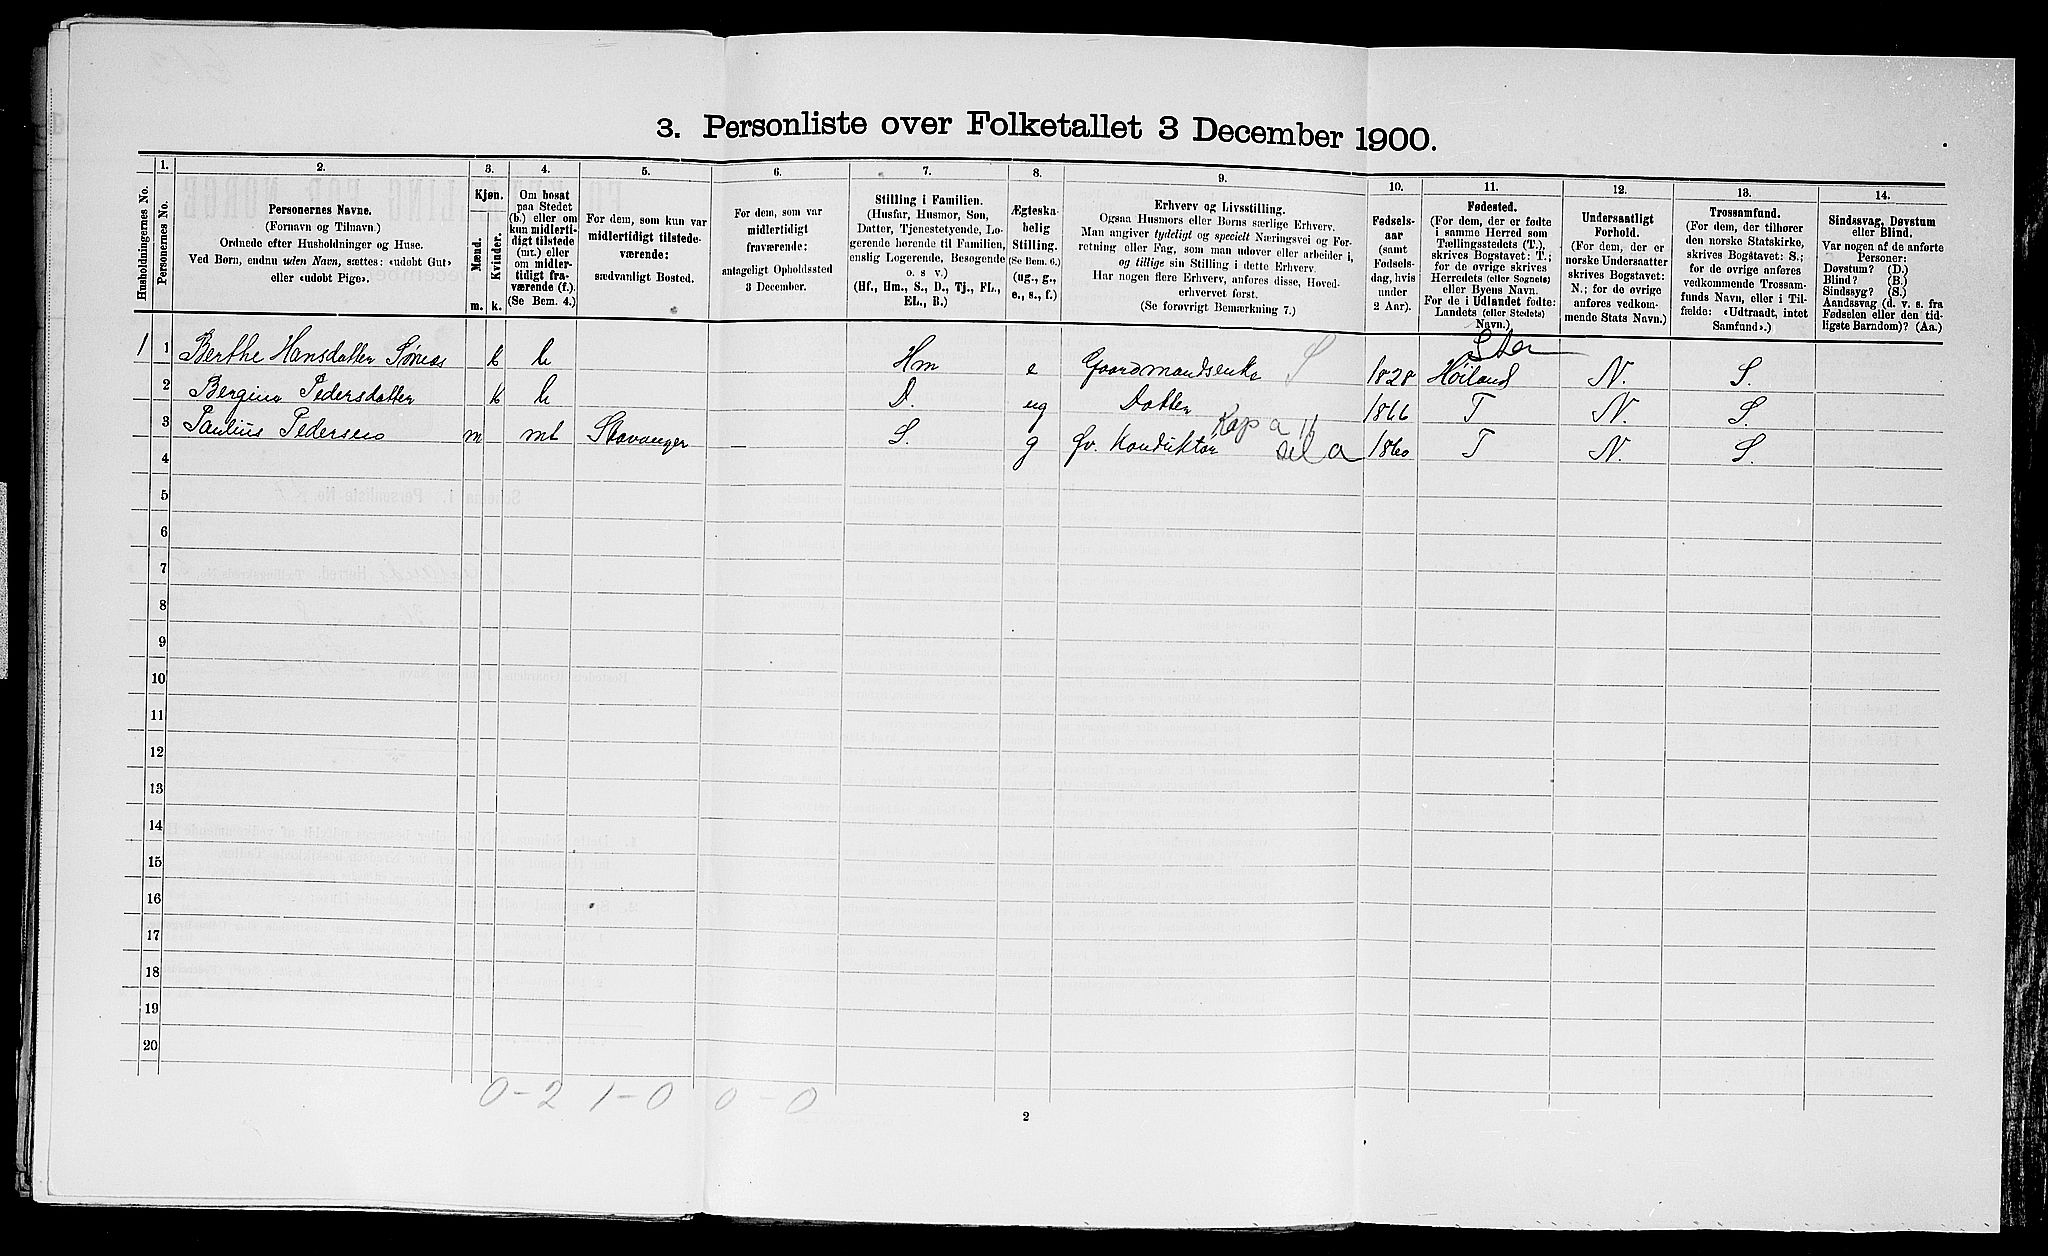 3. Personliste over Folketallet 3 December 1900.
Husholdningernes No.
1.
Personernes No.
2.
Personernes Navne.
(Fornavn og Tilnavn.)
Ordnede efter Husholdninger og Huse.
Ved Børn, endnu uden Navn, sættes: «udøbt Gut»
eller «udøbt Pige».
3.
Kjøn.
Mænd.
Kvinder.
m. k.
4.
Om bosat
paa Stedet
(b.) eller om
kun midlerti-
digt tilstede
(mt.) eller
om midler-
tidigt fra-
værende (f.)
(Se Bem. 4.)
5.
For dem, som kun var
midlertidigt tilstede-
værende:
sædvanligt Bosted.
6.
For dem, som var
midlertidigt
fraværende:
antageligt Opholdssted
3 December.
7.
Stilling i Familien.
(Husfar, Husmor, Søn,
Datter, Tjenestetyende, Lo-
gerende hørende til Familien,
enslig Logerende, Besøgende
o. s v.)
(Hf., Hm., S., D., Tj., FL.,
EL., B.)
8.
Ægteska-
belig
Stilling.
(Se Bem. 6.)
(ug., g.,
e., s., f.)
9.
Erhverv og Livsstilling.
Ogsaa Husmors eller Børns særlige Erhverv.
Man angiver tydeligt og specielt Næringsvei og For-
retning eller Fag, som man udøver eller arbeider i,
og tillige sin Stilling i dette Erhverv.
Har nogen flere Erhverv, anføres disse, Hoved-
erhvervet først.
(Se forøvrigt Bemærkning 7.)
10.
Fødsels-
aar
(samt
Fødsels-
dag, hvis
under
2 Aar).
11.
Fødested.
(For dem, der er fødte
i samme Herred som
Tællingsstedets (T.),
skrives Bogstavet: T.;
for de øvrige skrives
Herredets (eller Sognets)
eller Byens Navn.
For de i Udlandet fødte:
Landets (eller Stedets)
Navn.)
12.
Undersaatligt
Forhold.
(For dem, der er
norske Undersaatter
skrives Bogstavet:
N.; for de øvrige
anføres vedkom-
mende Stats Navn.)
13.
Trossamfund.
(For dem, der tilhører
den norske Statskirke,
skrives Bogstavet: S.;
for de øvrige anføres
vedkommende Trossam-
funds Navn, eller i Til-
fælde: «Udtraadt, intet
Samfund».)
14.
Sindssvag, Døvstum
eller Blind.
Var nogen af de anførte
Personer:
Døvstum? (D.)
Blind? (B.)
Sindssyg? (S.)
Aandssvag (d. v. s. fra
Fødselen eller den tid-
ligste Barndom)? (Aa.)
1 1 Berthe Hansdatter k b Hm e Gaardmandsenke S 1828 Høiland N. S.
2 Bergine Pedersdatter k b D. ug Datter 1866 T N. S.
3 Paulius Pedersen m mt Stavanger S. g fv. Konduktør 1860 T N. S.
4
5
6
7
8
9
10
11
12
13
14
15
16
17
18
19
20
0-2 1-0 0-0
2